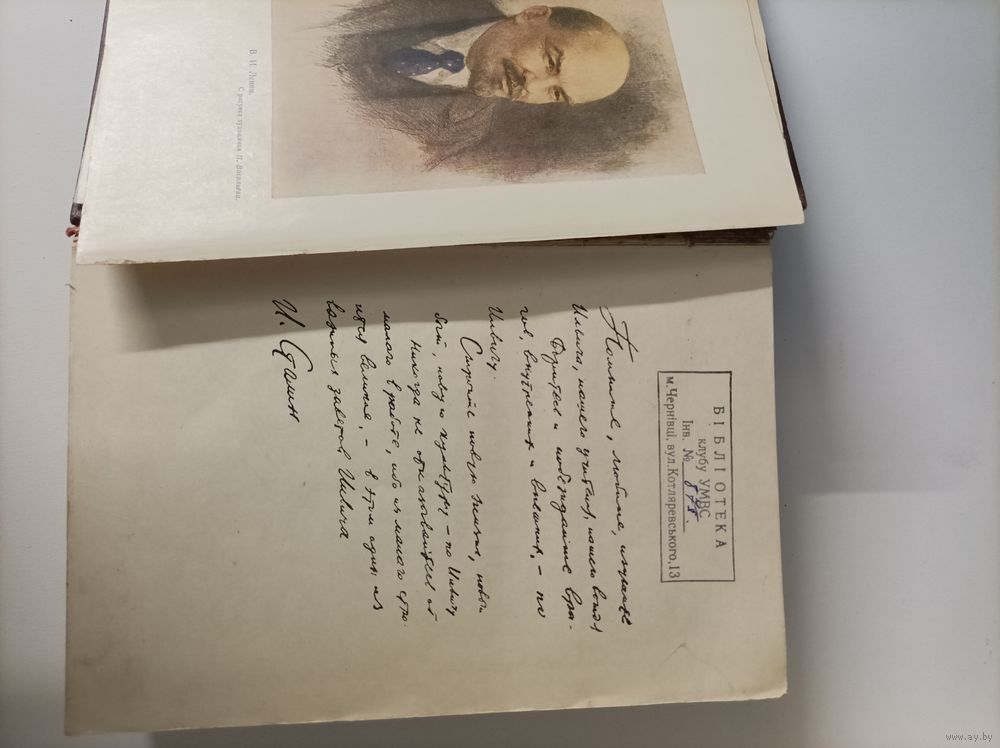 В. И. Ленин.
С рисунка художника П. Васильева.
БІБЛІОТЕКА
клубу УМВС
Інв. № 878.
м. Чернівці, вул. Котляревського, 13
Помните, любите, изучайте
Ильича, нашего учителя, нашего вождя
Боритесь и побеждайте вра-
гов, внутренних и внешних, – по
Ильичу.
Стройте новую жизнь, новый
быт, новую культуру – по Ильичу
Никогда не отказывайтесь от
малого в работе, ибо из малого стро-
ится великое, – в этом один из
важных заветов Ильича
И. Сталин
www.ay.by